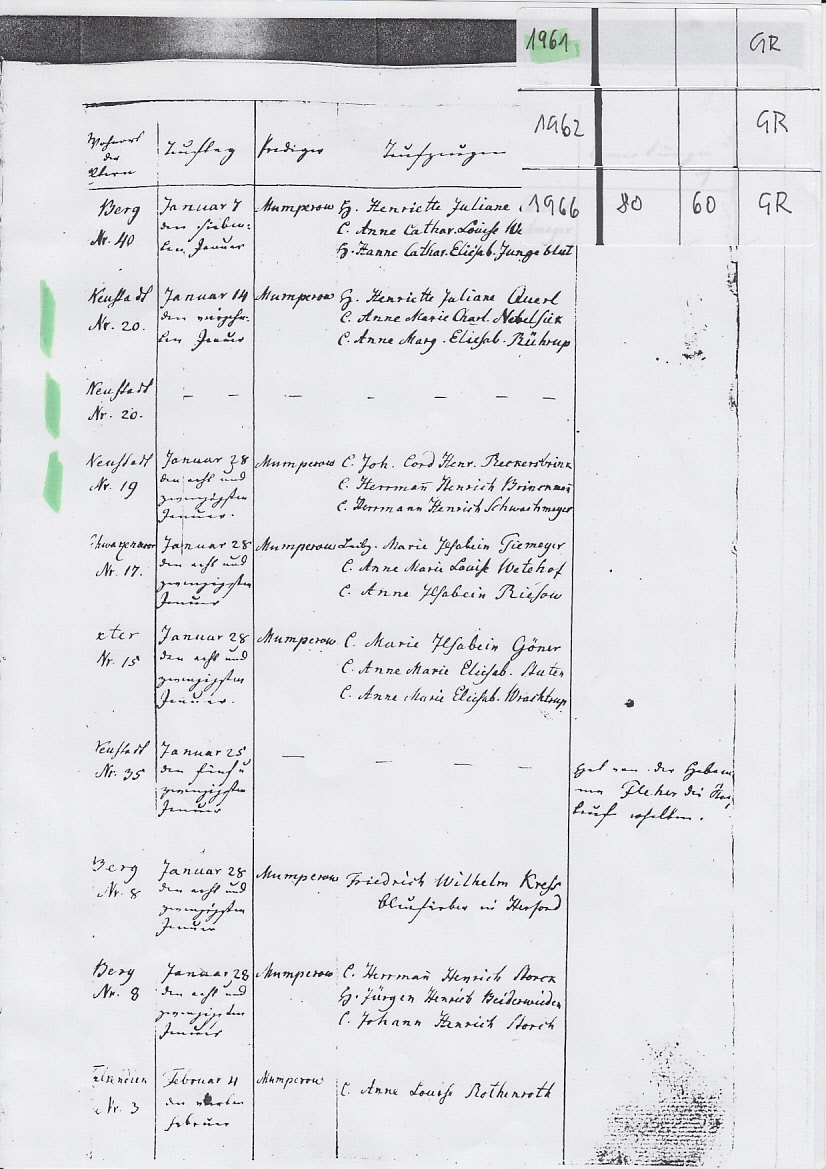 1961 GR
1962 GR
1966 80 60 GR
Wohnort der Eltern
Tauftag
Prediger
Taufzeugen
Berg Januar 7 Mumperow H. Henriette Juliane
Nr. 40 den sieben- C. Anne Cathar. Louise We
ten Januar H. Hanne Cathar. Eliesab. Jungeblut
Neustadt Januar 14 Mumperow H. Henriette Juliane Querl
Nr. 20. den vierzehn- C. Anne Marie Charl. Nebelsiek
ten Januar C. Anne Marg. Eliesab. Rührup
Neustadt
Nr. 20. — — — — — — —
Neustadt Januar 28 Mumperow C. Joh. Cord Henr. Reckersbrink
Nr. 19 den acht und C. Herrmañ Henrich Brinckmañ
zwanzigsten C. Herrmann Henrich Schwachmeyer
Januar.
Januar 28 Mumperow Marie Ilsabein Giemeyer
Nr. 17. den acht und C. Anne Marie Louise Wetehof
zwanzigsten C. Anne Ilsabein Riesow
Januar
xter Januar 28 Mumperow C. Marie Ilsabein Göner
Nr. 15 den acht und C. Anne Marie Eliesab. Stuten
zwanzigsten C. Anne Marie Eliesab. Wrachtrup
Januar.
Neustadt Januar 25 — — — —
Nr. 35 den fünf u
zwanzigsten
Januar
hat von der Hebam
me Fleher die
taufe erhalten.
Berg Januar 28 Mumperow Friedrich Wilhelm Kress
Nr. 8 den acht und Blaufärber in Herford
zwanzigsten
Januar
Berg Januar 28 Mumperow C. Herrmañ Henrich Storck
Nr. 8 den acht und H. Jürgen Henrich Beiderwieden
zwanzigsten C. Johann Henrich Storch
Januar
Februar 4 Mumperow C. Anne Louise Rothenroth
Nr. 3 den vierten
Februar